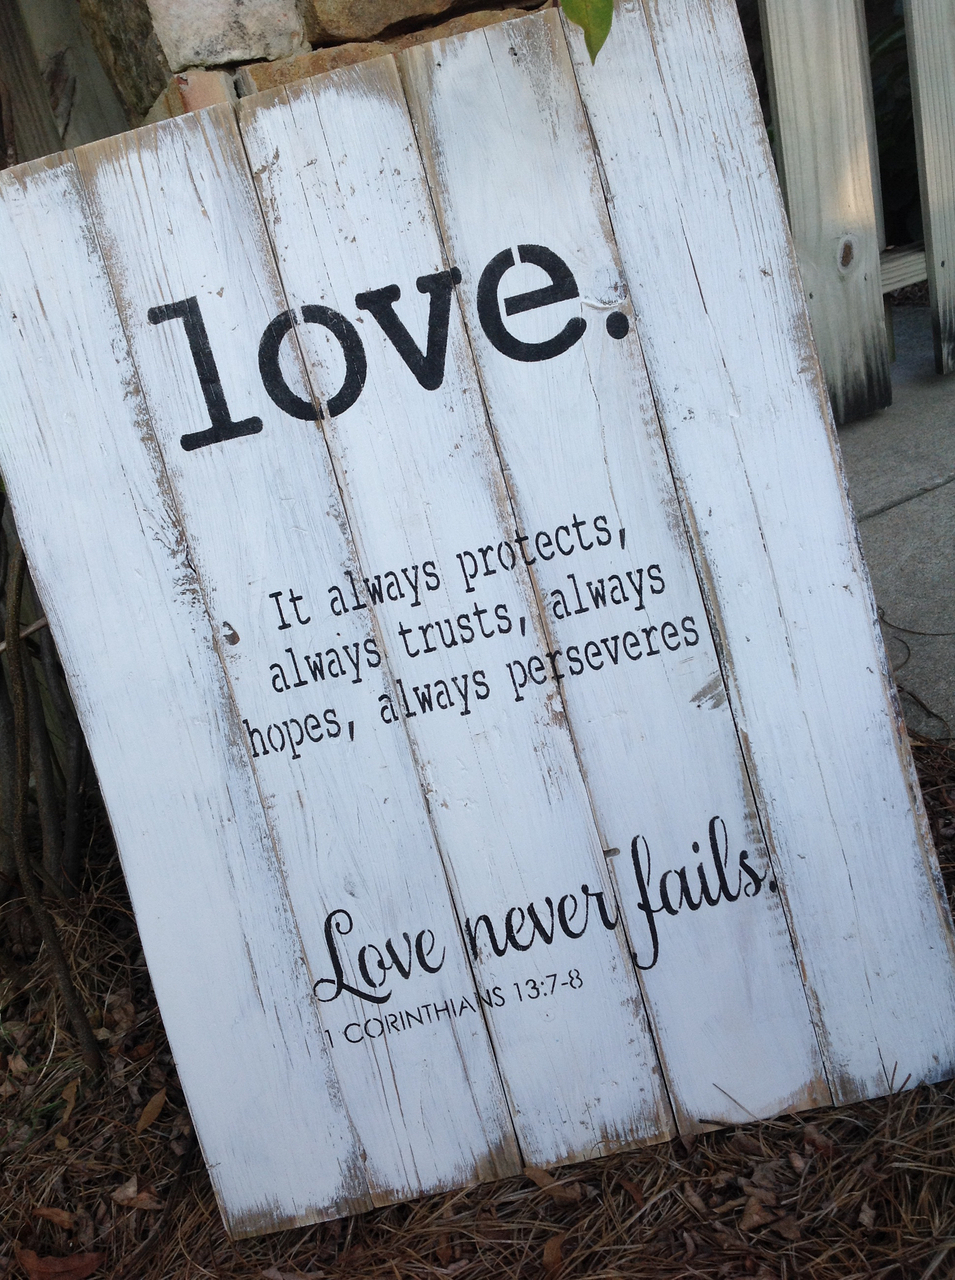 love.
It always protects,
always trusts, always
hopes, always perseveres
Love never fails.
1 CORINTHIANS 13:7-8